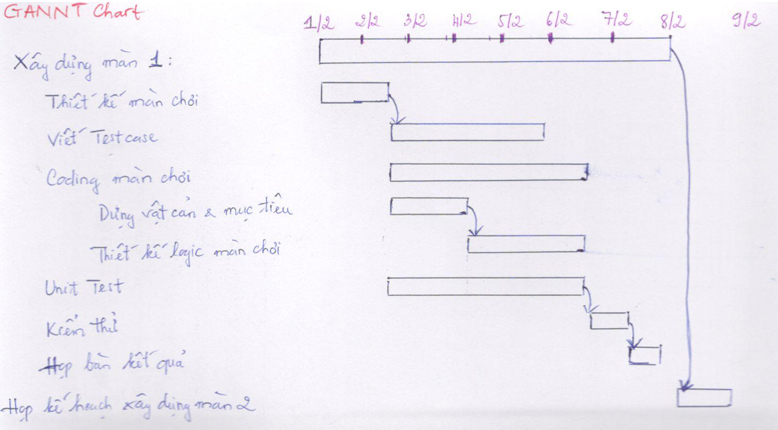 GANNT Chart
1/2 2/2 3/2 4/2 5/2 6/2 7/2 8/2 9/2
Xây dựng màn 1:
Thiết kế màn chơi
Viết Testcase
Coding màn chơi
Dựng vật cản & mục tiêu
Thiết kế logic màn chơi
Unit Test
Kiểm thử
Họp bàn kết quả
Họp kế hoạch xây dựng màn 2